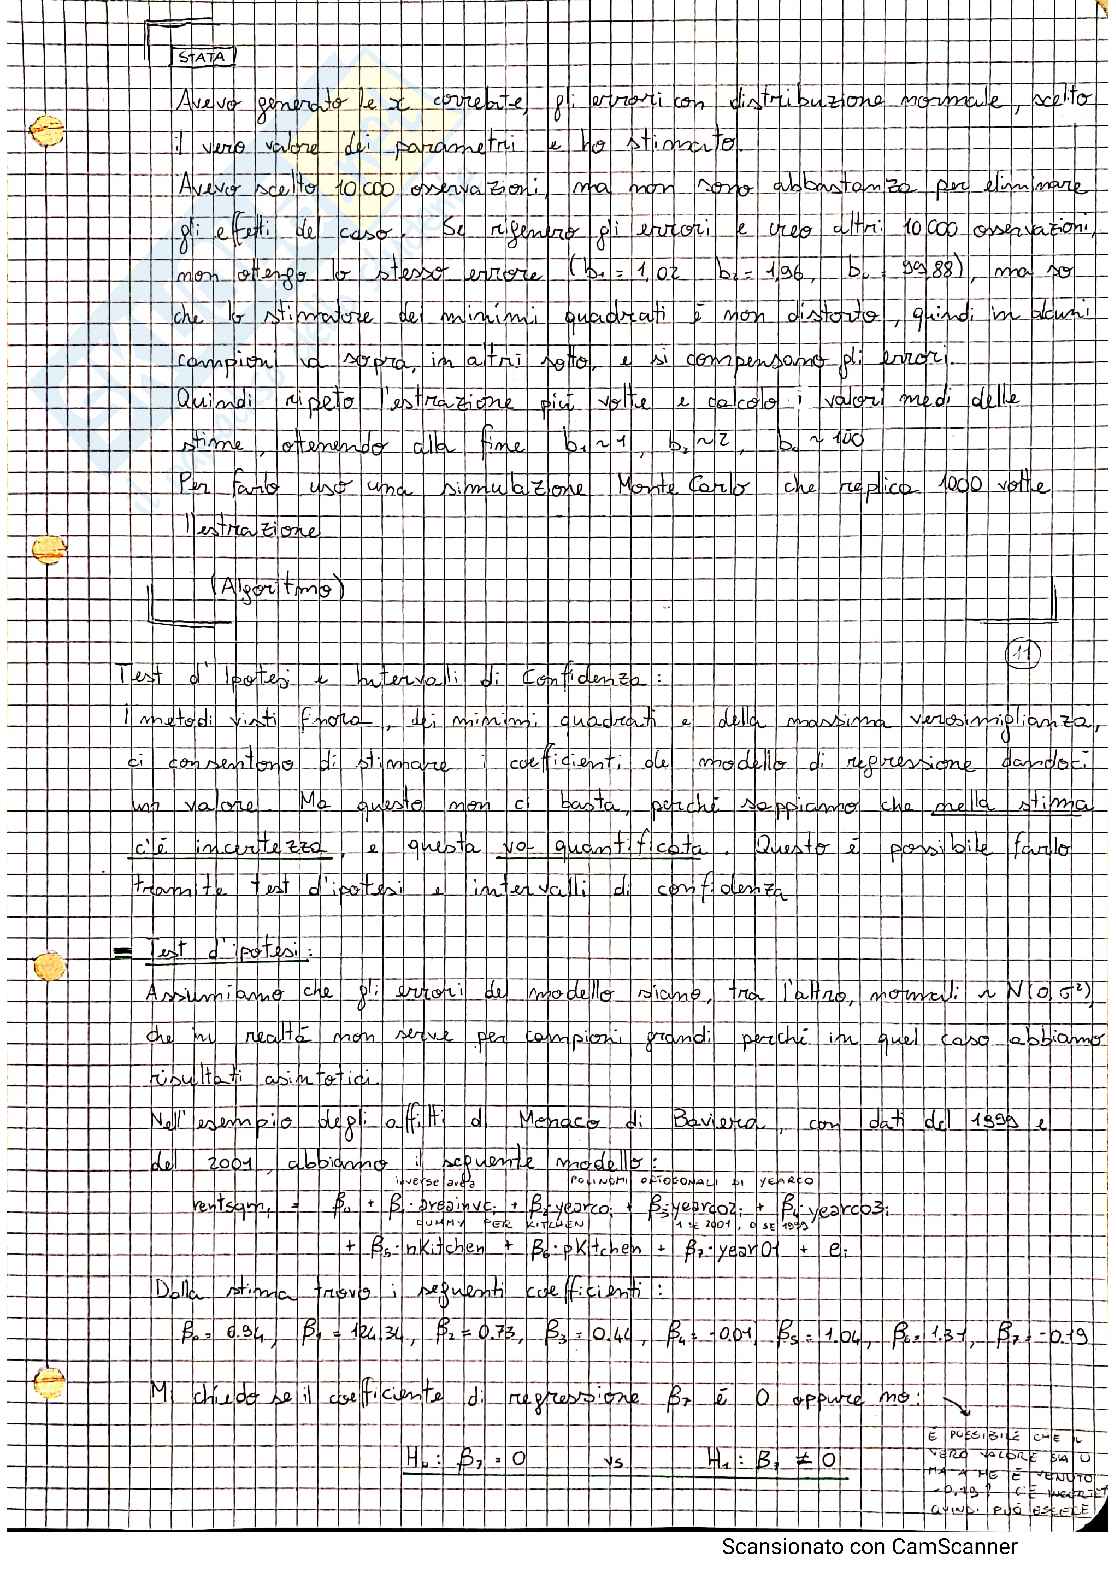 STATA
Avevo generato le x correlate, gli errori con distribuzione normale, scelto
il vero valore dei parametri e ho stimato.
Avevo scelto 10 000 osservazioni, ma non sono abbastanza per eliminare
gli effetti del caso. Se rigenero gli errori e creo altri 10 000 osservazioni,
non ottengo lo stesso errore (b₁ = 1,02 b₂ = 1,96, b₀ = 99,88), ma so
che lo stimatore dei minimi quadrati è non distorto, quindi in alcuni
campioni va sopra, in altri sotto, e si compensano gli errori.
Quindi ripeto l'estrazione più volte e calcolo i valori medi delle
stime, ottenendo alla fine b₁ ~ 1, b₂ ~ 2, b₀ ~ 100
Per farlo uso una simulazione Monte Carlo che replica 1000 volte
l'estrazione
(Algoritmo)
11
Test d'Ipotesi e Intervalli di Confidenza:
I metodi visti finora, dei minimi quadrati e della massima verosimiglianza,
ci consentono di stimare i coefficienti del modello di regressione dandoci
un valore. Ma questo non ci basta, perché sappiamo che nella stima
c'è incertezza, e questa va quantificata. Questo è possibile farlo
tramite test d'ipotesi e intervalli di confidenza
= Test d'ipotesi:
Assumiamo che gli errori del modello siano, tra l'altro, normali ~ N(0,σ²),
che in realtà non serve per campioni grandi perché in quel caso abbiamo
risultati asintotici.
Nell'esempio degli affitti di Monaco di Baviera, con dati del 1999 e
del 2001, abbiamo il seguente modello:
inverse area POLINOMI ORTOGONALI DI YEARCO
rentsqmᵢ = β₀ + β₁·areainvcᵢ + β₂·yearcoᵢ + β₃·yearco2ᵢ + β₄·yearco3ᵢ
DUMMY PER KITCHEN 1 SE 2001, 0 SE 1999
+ β₅·nKitchen + β₆·pKitchen + β₇·year01 + eᵢ
Dalla stima trovo i seguenti coefficienti:
β₀ = 6.94, β₁ = 124.34, β₂ = 0.73, β₃ = 0.44, β₄ = -0.01, β₅ = 1.04, β₆ = 1.31, β₇ = -0.19
Mi chiedo se il coefficiente di regressione β₇ è 0 oppure no:
H₀: β₇ = 0 vs H₁: β₇ ≠ 0
È POSSIBILE CHE IL
VERO VALORE SIA 0
MA A ME È VENUTO
-0,19? C'È
QUINDI PUÒ ESSERE
Scansionato con CamScanner